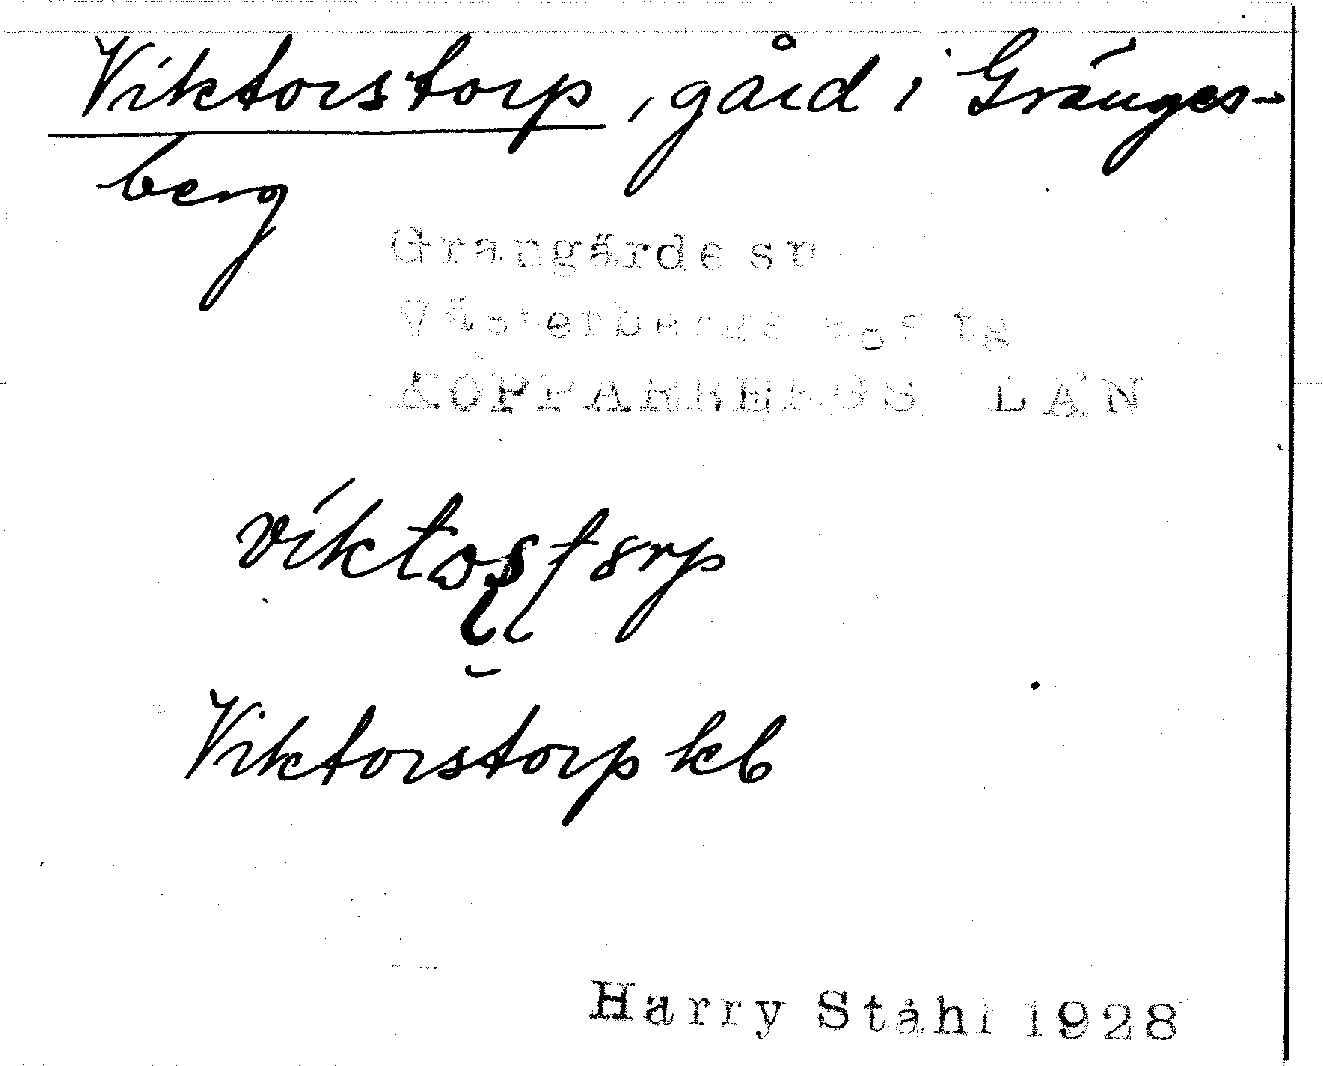 Viktorstorp, gård i Gränges-
berg
Grangärde sn
Västerbergs
KOPPARBERGS LÄN
Viktorstorp kb
Harry Ståhl 1928